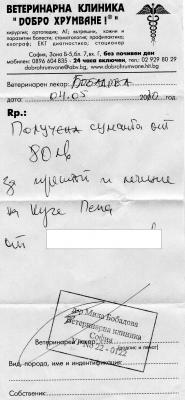 ВЕТЕРИНАРНА КЛИНИКА
"ДОБРО ХРУМВАНЕ!®"
хирургия; ортопедия; АГ; вътрешни, кожни и
паразитни болести; стоматология; профилактика;
ехограф; ЕКГ диагностика; стационар
София, Зона Б-5, бл. 7, вх. Г, без почивен ден
мобилен: 0896 604 835 - 24 часа; тел.: 02 929 80 29
dobrohrumvane@abv.bg, www.dobrohrumvane.hit.bg
Ветеринарен лекар: Бобалова
дата: 04.05 2010 год.
Rp.:
Получена сумата от
80 лв
за прегled и лечение
на куче
от
д-р Мила Бобалова
Ветеринарна клиника
София
No 22 - 0122
Ветеринарен лекар:
(подпис и печат)
Вид, порода, име и идентификация:
Собственик: